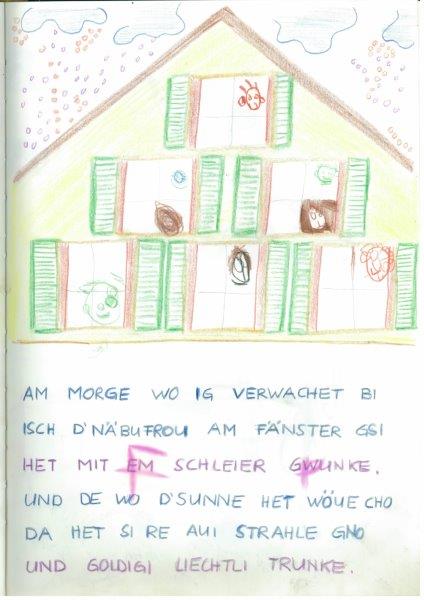 AM MORGE WO IG VERWACHET BI
ISCH D'NÄBUFROU AM FÄNSTER GSI
HET MIT EM SCHLEIER GWUNKE.
UND DE WO D'SUNNE HET WÖUE CHO
DA HET SI RE AUI STRAHLE GNO
UND GOLDIGI LIECHTLI TRUNKE.